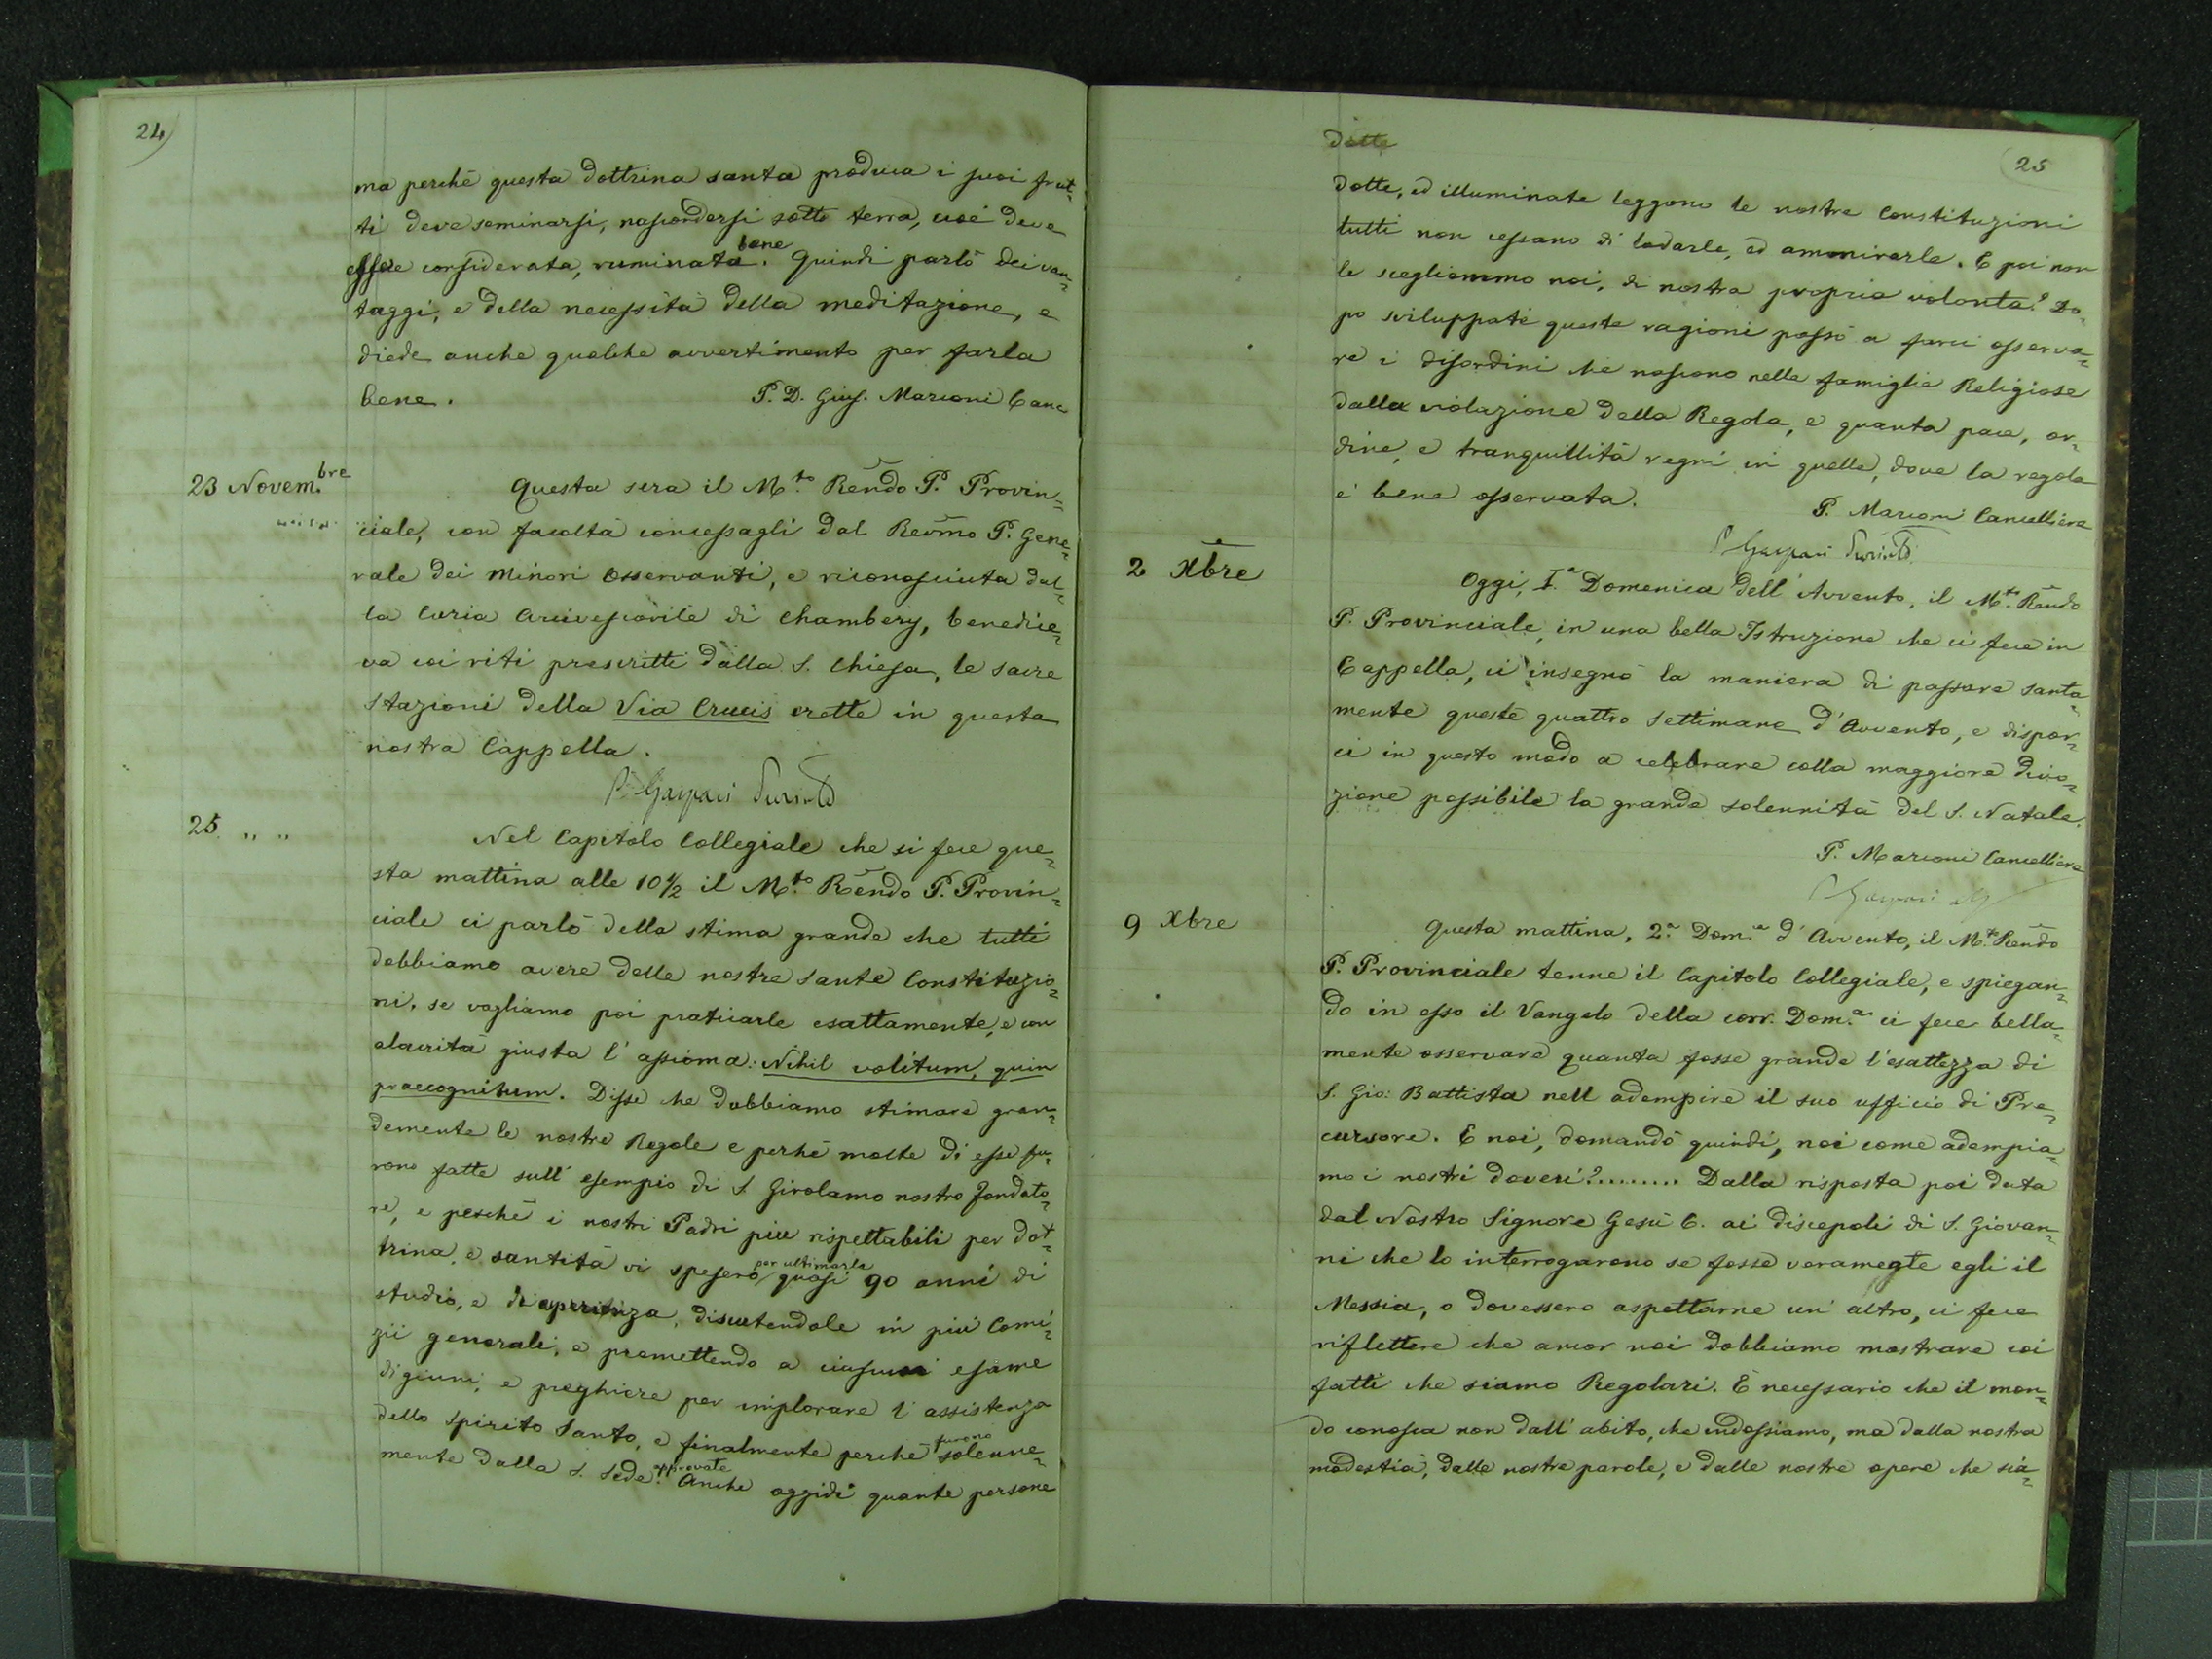 24
ma perchè questa dottrina santa produca i suoi frut=
ti deve seminarsi, nascondersi sotto terra, cioè deve
essere considerata, ruminata bene. Quindi parlò dei van=
taggi, e della necessità della meditazione, e
diede anche qualche avvertimento per farla
bene. P. D. Gius. Marconi Canc
23 Novem.bre Questa sera il M.to Rendo P. Provin=
ciale, con facoltà concessagli dal Revmo P. Gene=
rale dei Minori Osservanti, e riconosciuta dal=
la Curia Arcivescovile di Chambery, benedice=
va coi riti prescritti dalla S. Chiesa, le sacre
stazioni della Via Crucis erette in questa
nostra Cappella.
P. Gaspari
25 " " Nel Capitolo Collegiale che si fece que=
sta mattina alle 10 1/2 il M.to Rendo P. Provin=
ciale ci parlò della stima grande che tutti
dobbiamo avere delle nostre sante Constituzio=
ni, se vogliamo poi praticarle esattamente, e con
alacrità giusta l'assioma: Nihil volitum, quin
praecognitum. Disse che dobbiamo stimare gran=
demente le nostre Regole e perchè molte di esse fu=
rono fatte sull'esempio di S. Girolamo nostro fondato=
re, e perchè i nostri Padri più rispettabili per dot=
trina, e santità vi spesero per ultimarle quasi 90 anni di
studio, e di esperienza, discutendole in più Comi=
zii generali, e premettendo a ciascun esame
digiuni, e preghiere per implorare l'assistenza
dello Spirito Santo, e finalmente perchè furono solenne=
mente dalla S. Sede approvate. Anche oggidì quante persone
25
dotte
dotte, ed illuminate leggono le nostre Constituzioni
tutti non cessano di lodarle, ed ammirarle. E poi non
le scegliemmo noi, di nostra propria volontà? Do=
po sviluppate queste ragioni passò a farci osserva=
re i disordini che nascono nelle famiglie Religiose
dalla violazione della Regola, e quanta pace, or=
dine, e tranquillità regni in quelle, dove la regola
è bene osservata.
P. Marconi Cancelliere
P Gaspari
2 Xbre Oggi, I.a Domenica dell'Avvento, il M.to Rendo
P. Provinciale, in una bella Istruzione che ci fece in
Cappella, ci insegnò la maniera di passare santa=
mente queste quattro settimane d'Avvento, e dispor=
ci in questo modo a celebrare colla maggiore divo=
zione possibile la grande solennità del S. Natale.
P. Marconi Cancelliere
P Gaspari
9 Xbre Questa mattina, 2.a Dom.ca d'Avvento, il M.to Rendo
P. Provinciale tenne il Capitolo Collegiale, e spiegan=
do in esso il Vangelo della corr. Dom.ca ci fece bella=
mente osservare quanta fosse grande l'esattezza di
S. Gio: Battista nell'adempire il suo ufficio di Pre=
cursore. E noi, domandò quindi, noi come adempia=
mo i nostri doveri?......... Dalla risposta poi data
dal Nostro Signore Gesù C. ai discepoli di S. Giovan=
ni che lo interrogarono se fosse veramente egli il
Messia, o dovessero aspettarne un altro, ci fece
riflettere che ancor noi dobbiamo mostrare coi
fatti che siamo Regolari. È necessario che il mon=
do conosca non dall'abito, che indossiamo, ma dalla nostra
modestia, dalle nostre parole, e dalle nostre opere che sia=